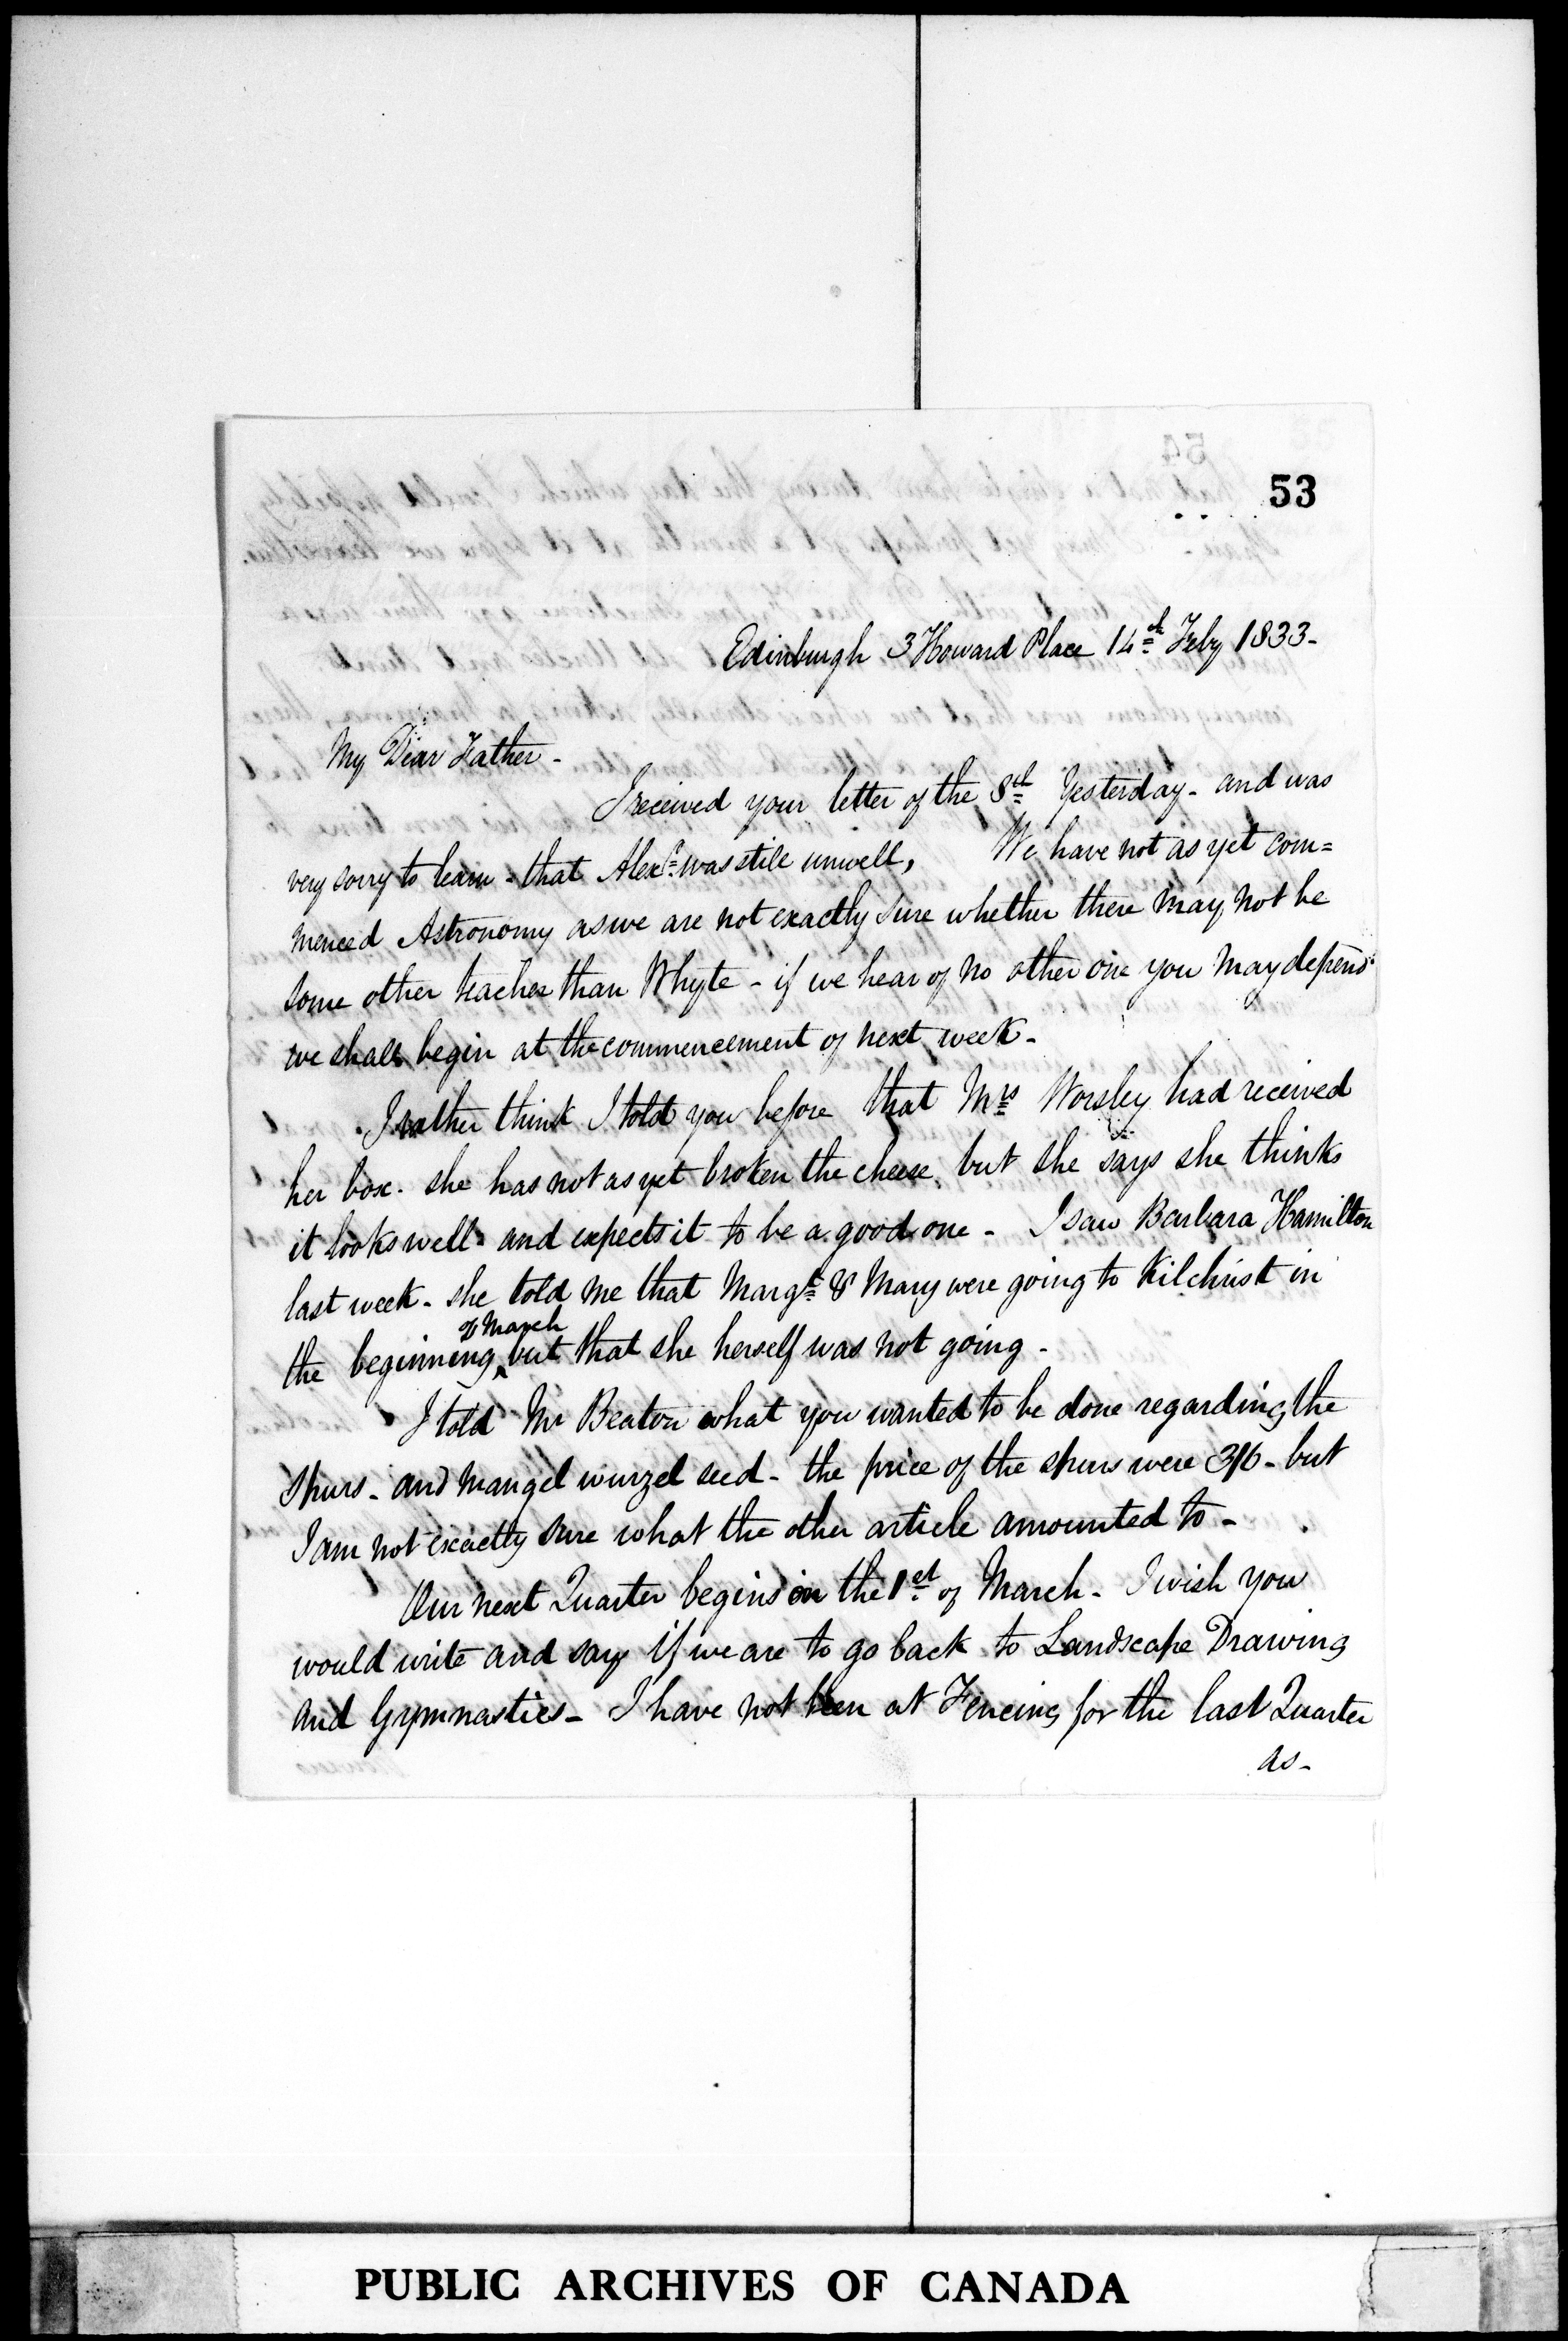 53
Edinburgh 3 Howard Place 14th Feby 1833-
My Dear Father-
I received your letter of the 8th Yesterday- and was
very sorry to learn- that Alexr. was still unwell, We have not as yet com=
menced Astronomy as we are not exactly sure whether there may not be
some other teacher than Whyte- if we hear of no other one you may depend
we shall begin at the commencement of next week-
I rather think I told you before that Mrs Worsley had received
her box. she has not as yet broken the cheese, but she says she thinks
it looks well- and expects it to be a good one- I saw Barbara Hamilton
last week- she told me that Margt & Mary were going to Kilchrist in
of March
the beginning ‸ but that she herself was not going-
I told Mr Beaton what you wanted to be done regarding the
spurs- and mangel wurzel seed- the price of the spurs were 3/6- but
I am not exactly sure what the other article amounted to-
Our next Quarter begins on the 1st of March- I wish you
would write and say if we are to go back to Landscape Drawing
and Gymnastics- I have not been at Fencing for the last Quarter
as-
PUBLIC ARCHIVES OF CANADA